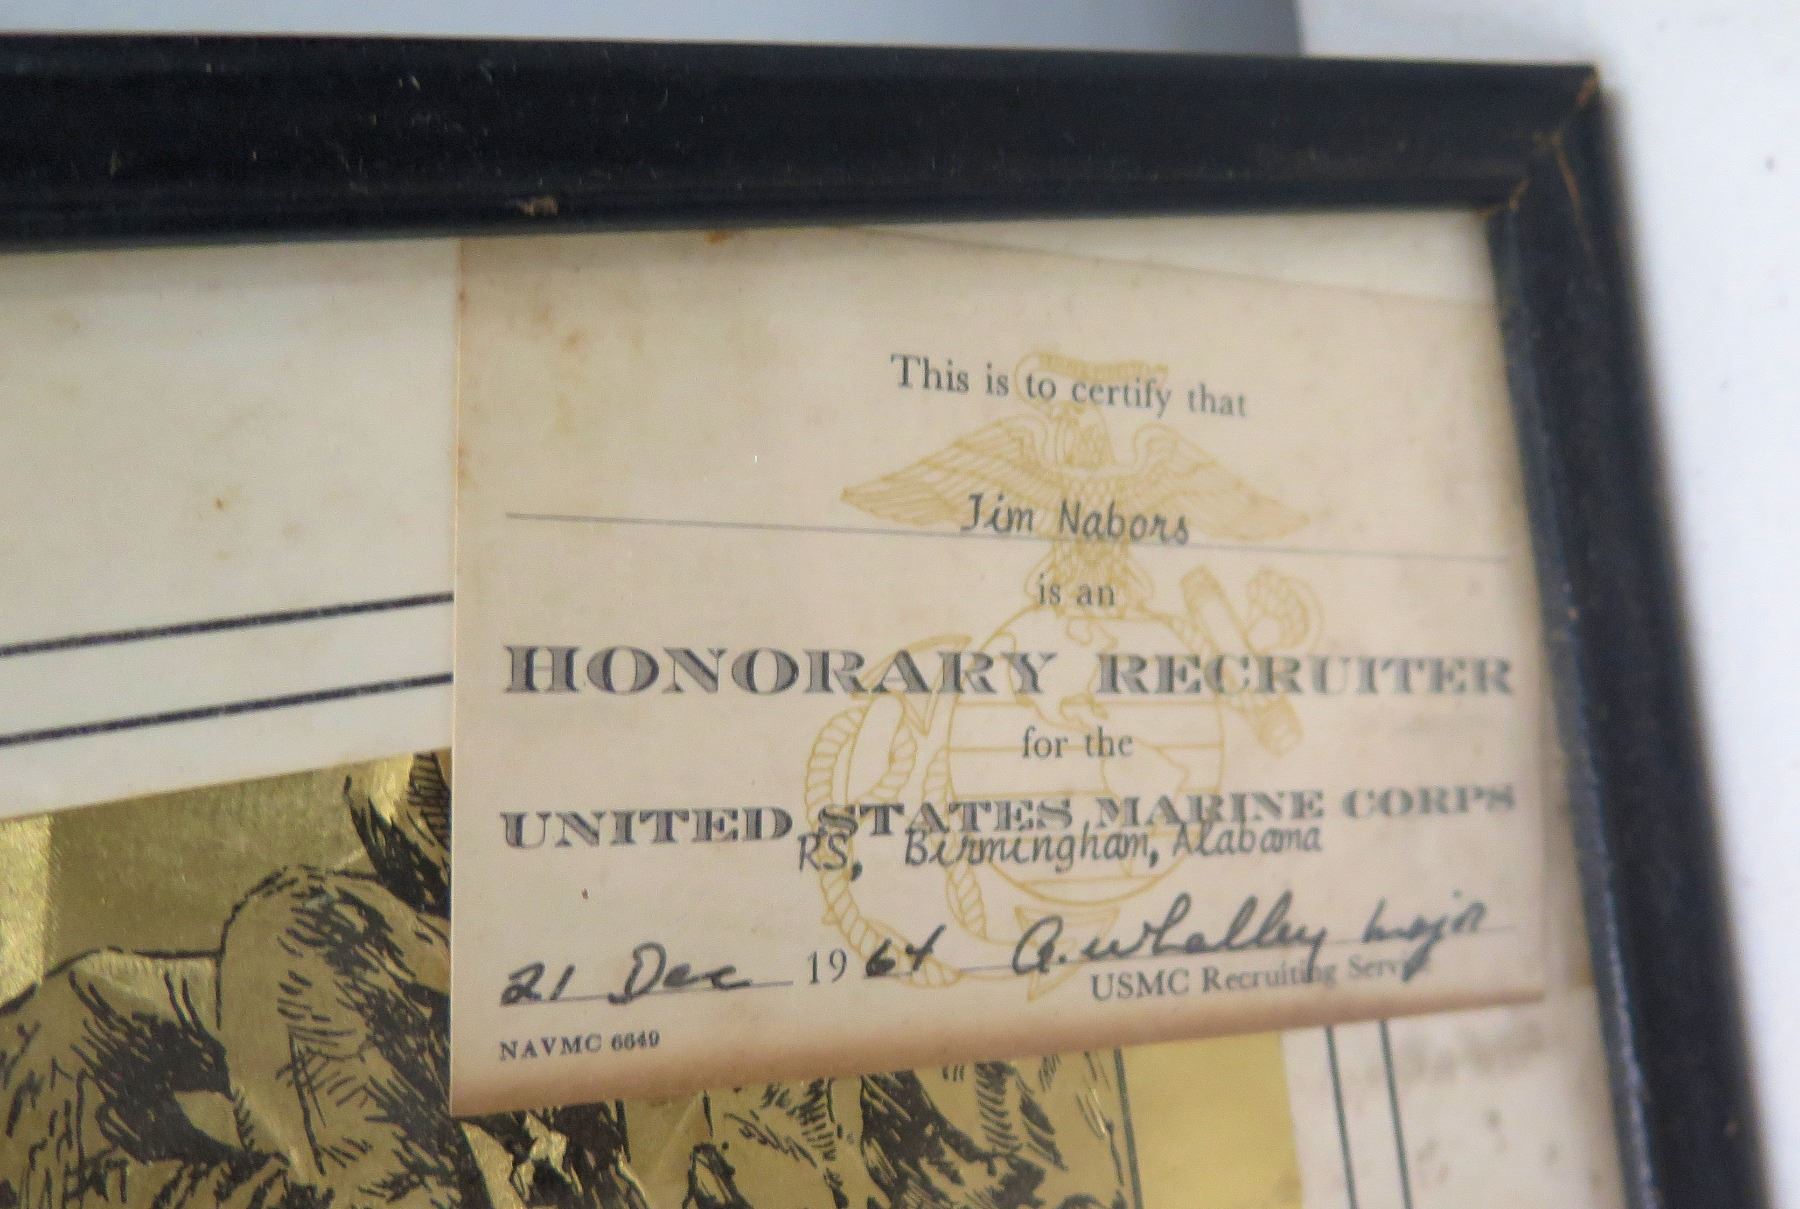 This is to certify that
Jim Nabors
is an
HONORARY RECRUITER
for the
UNITED STATES MARINE CORPS
RS, Birmingham, Alabama
21 Dec 1964 A. Whalley Major
USMC Recruiting Service
NAVMC 6649